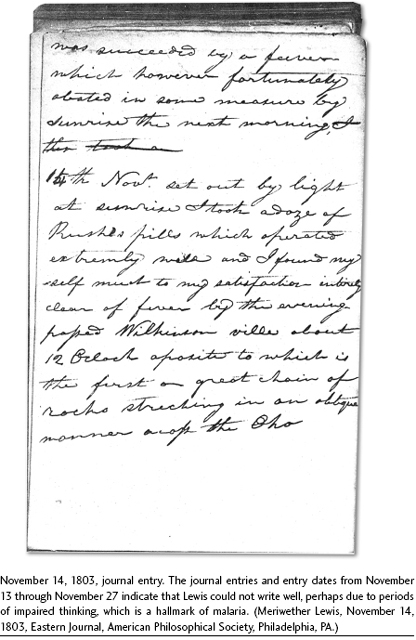 was succeeded by a feever
which however fortunately
abated in some measure by
sunrise the next morning, I
then took a
14th Novr. set out by light
at sunrise I took a doze of
Rush's pills which operated
extremly well and I found my
self much to my satisfaction intirely
clear of fever by the evening
passed Wilkinson ville about
12 Oclock oposite to which is
the first or great chain of
rocks streching in an oblique
manner across the Oho
November 14, 1803, journal entry. The journal entries and entry dates from November
13 through November 27 indicate that Lewis could not write well, perhaps due to periods
of impaired thinking, which is a hallmark of malaria. (Meriwether Lewis, November 14,
1803, Eastern Journal, American Philosophical Society, Philadelphia, PA.)